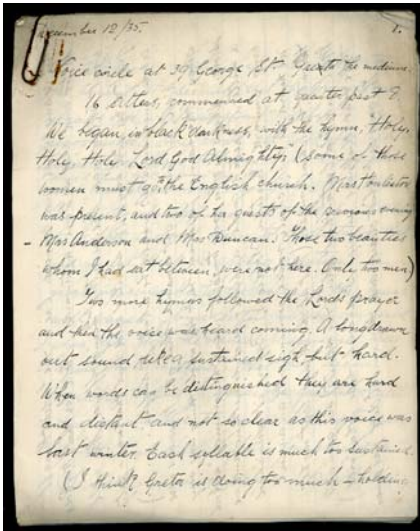 December 12/35. 1.
Voice circle at 39 George St. Greta the medium.
16 sitters, commenced at quarter past 8.
We began, in black darkness, with the hymn, "Holy,
Holy, Holy, Lord God Almighty" (some of those
women must go to the English church. Mrs
was present, and two of her guests of the previous evening
- Mrs Anderson and Mrs Duncan. Those two beauties
whom I had sat between, were not here. Only two men)
Two more hymns followed the Lords prayer
and then the voice was heard coming. A long drawn
out sound like a sustained sigh, but hard.
When words can be distinguished they are hard
and distant and not so clear as this voice was
last winter. Each syllable is much too sustained.
(I think Greta is doing too much - holding